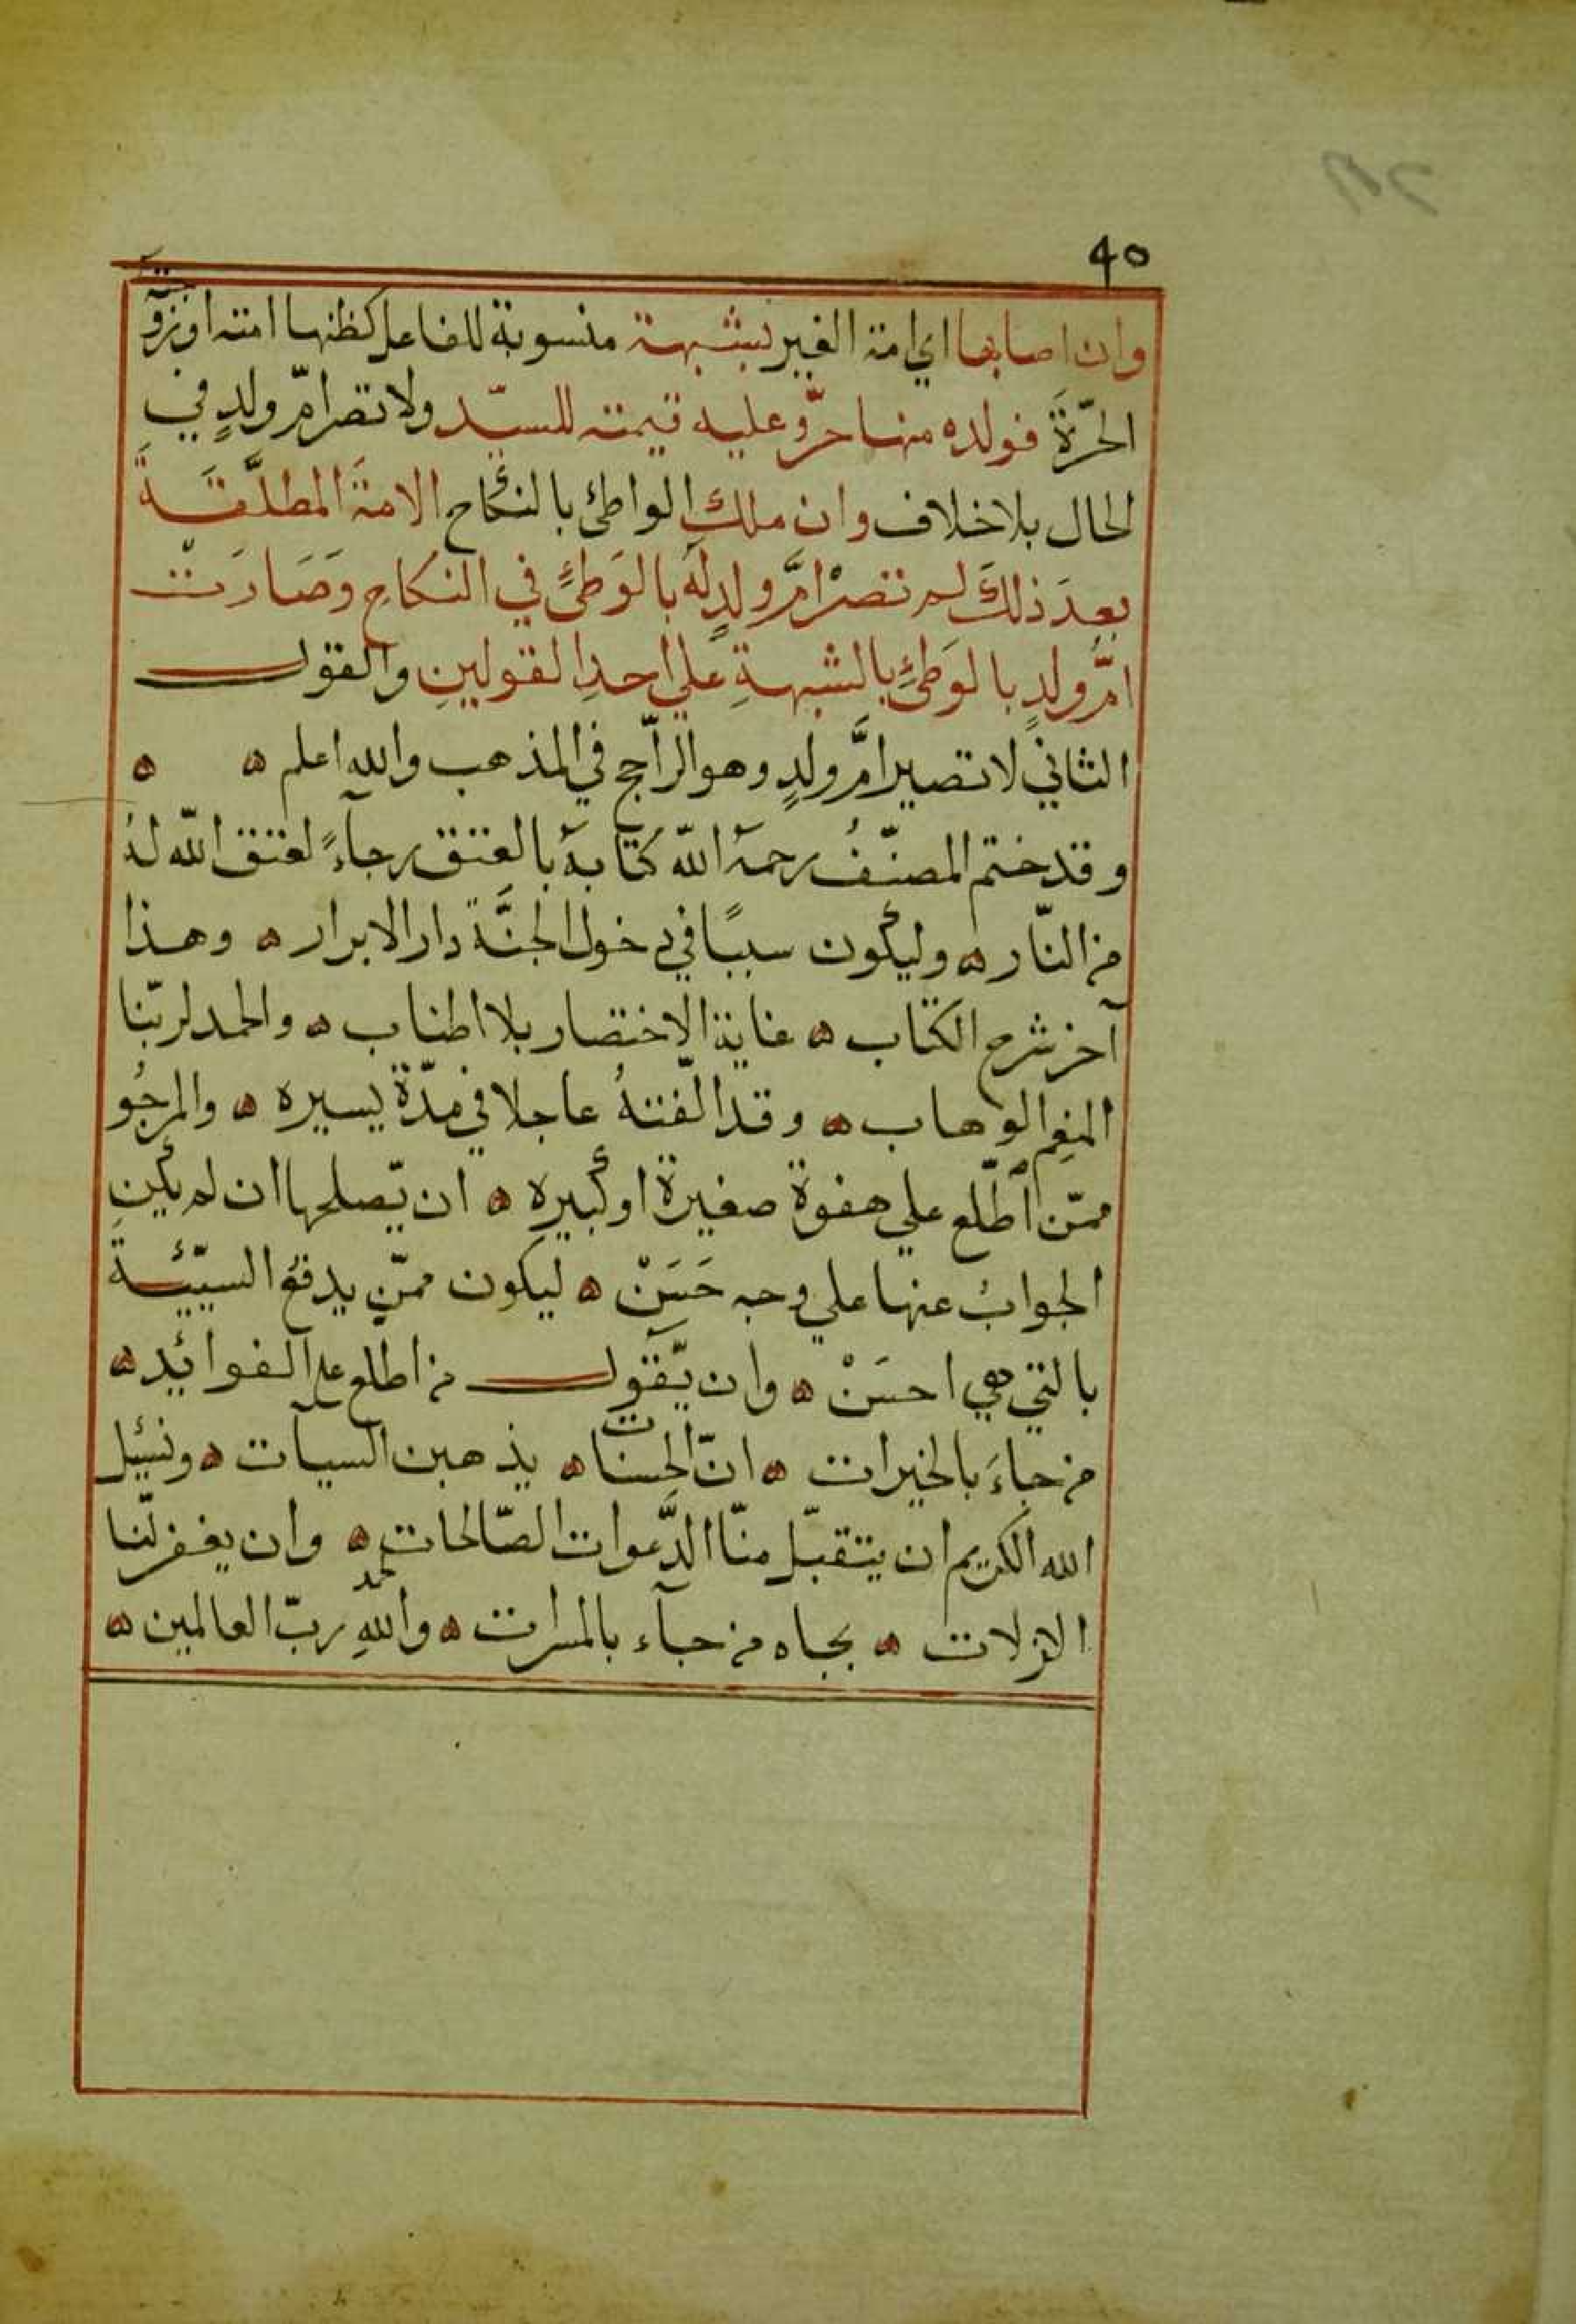 ٩٥
وان اصابها اي امة الغير بشبهة منسوبة للفاعل كظنها امته او زوجته
الحرّة فولده منها حرّ وعليه قيمته للسيّد ولا تصر امّ ولدٍ في
الحال بلا خلاف وان ملك الواطئ بالنكاح الامةَ المطلَّقةَ
بعدَ ذلكَ لم تصرْ امَّ ولدٍ لهُ بالوَطئِ في النكاحِ وَصَارَتْ
امَّ ولدٍ بالوَطئِ بالشبهةِ علي احدِ القولينِ والقول
الثاني لا تصير امَّ ولدٍ وهو الراجح في المذهب والله اعلم ه ه
وقد ختم المصنّفُ رحمه الله كتابه بالعتق رجاءً لعتق الله لهُ
من النّار ه وليكون سببًا في دخول الجنَّة دار الابرار ه وهذا
آخر شرح الكتاب ه غاية الاختصار بلا اطناب ه والحمد لربّنا
المنعم الوهاب ه وقد الّفتهُ عاجلا في مدّة يسيره ه والمرجُو
ممّن اطّلع علي هفوة صغيرة او كبيره ه ان يّصلحها ان لم يكن
الجوابُ عنها علي وجه حَسَنْ ه ليكون ممّن يدفع السيّئة
بالتي هي احسَنْ ه وان يّقول من اطلع علي الفوائد ه
من جاءَ بالخيرات ه انّ الحسنات ه يذهبن السيات ه ونسئل
الله الكريم ان يتقبّل منّا الدَّعوات الصّالحات ه وان يغفر لنا
الزلات ه بجاه من جآء بالمسرات ه والحمد للهِ ربّ العالمين ه